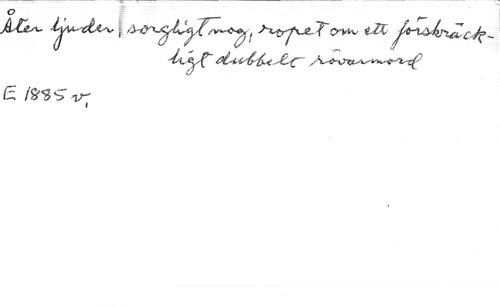 Åter ljuder sorgligt nog, ropet om ett förskräck-
ligt dubbelt rövarmord
E 1885 v,